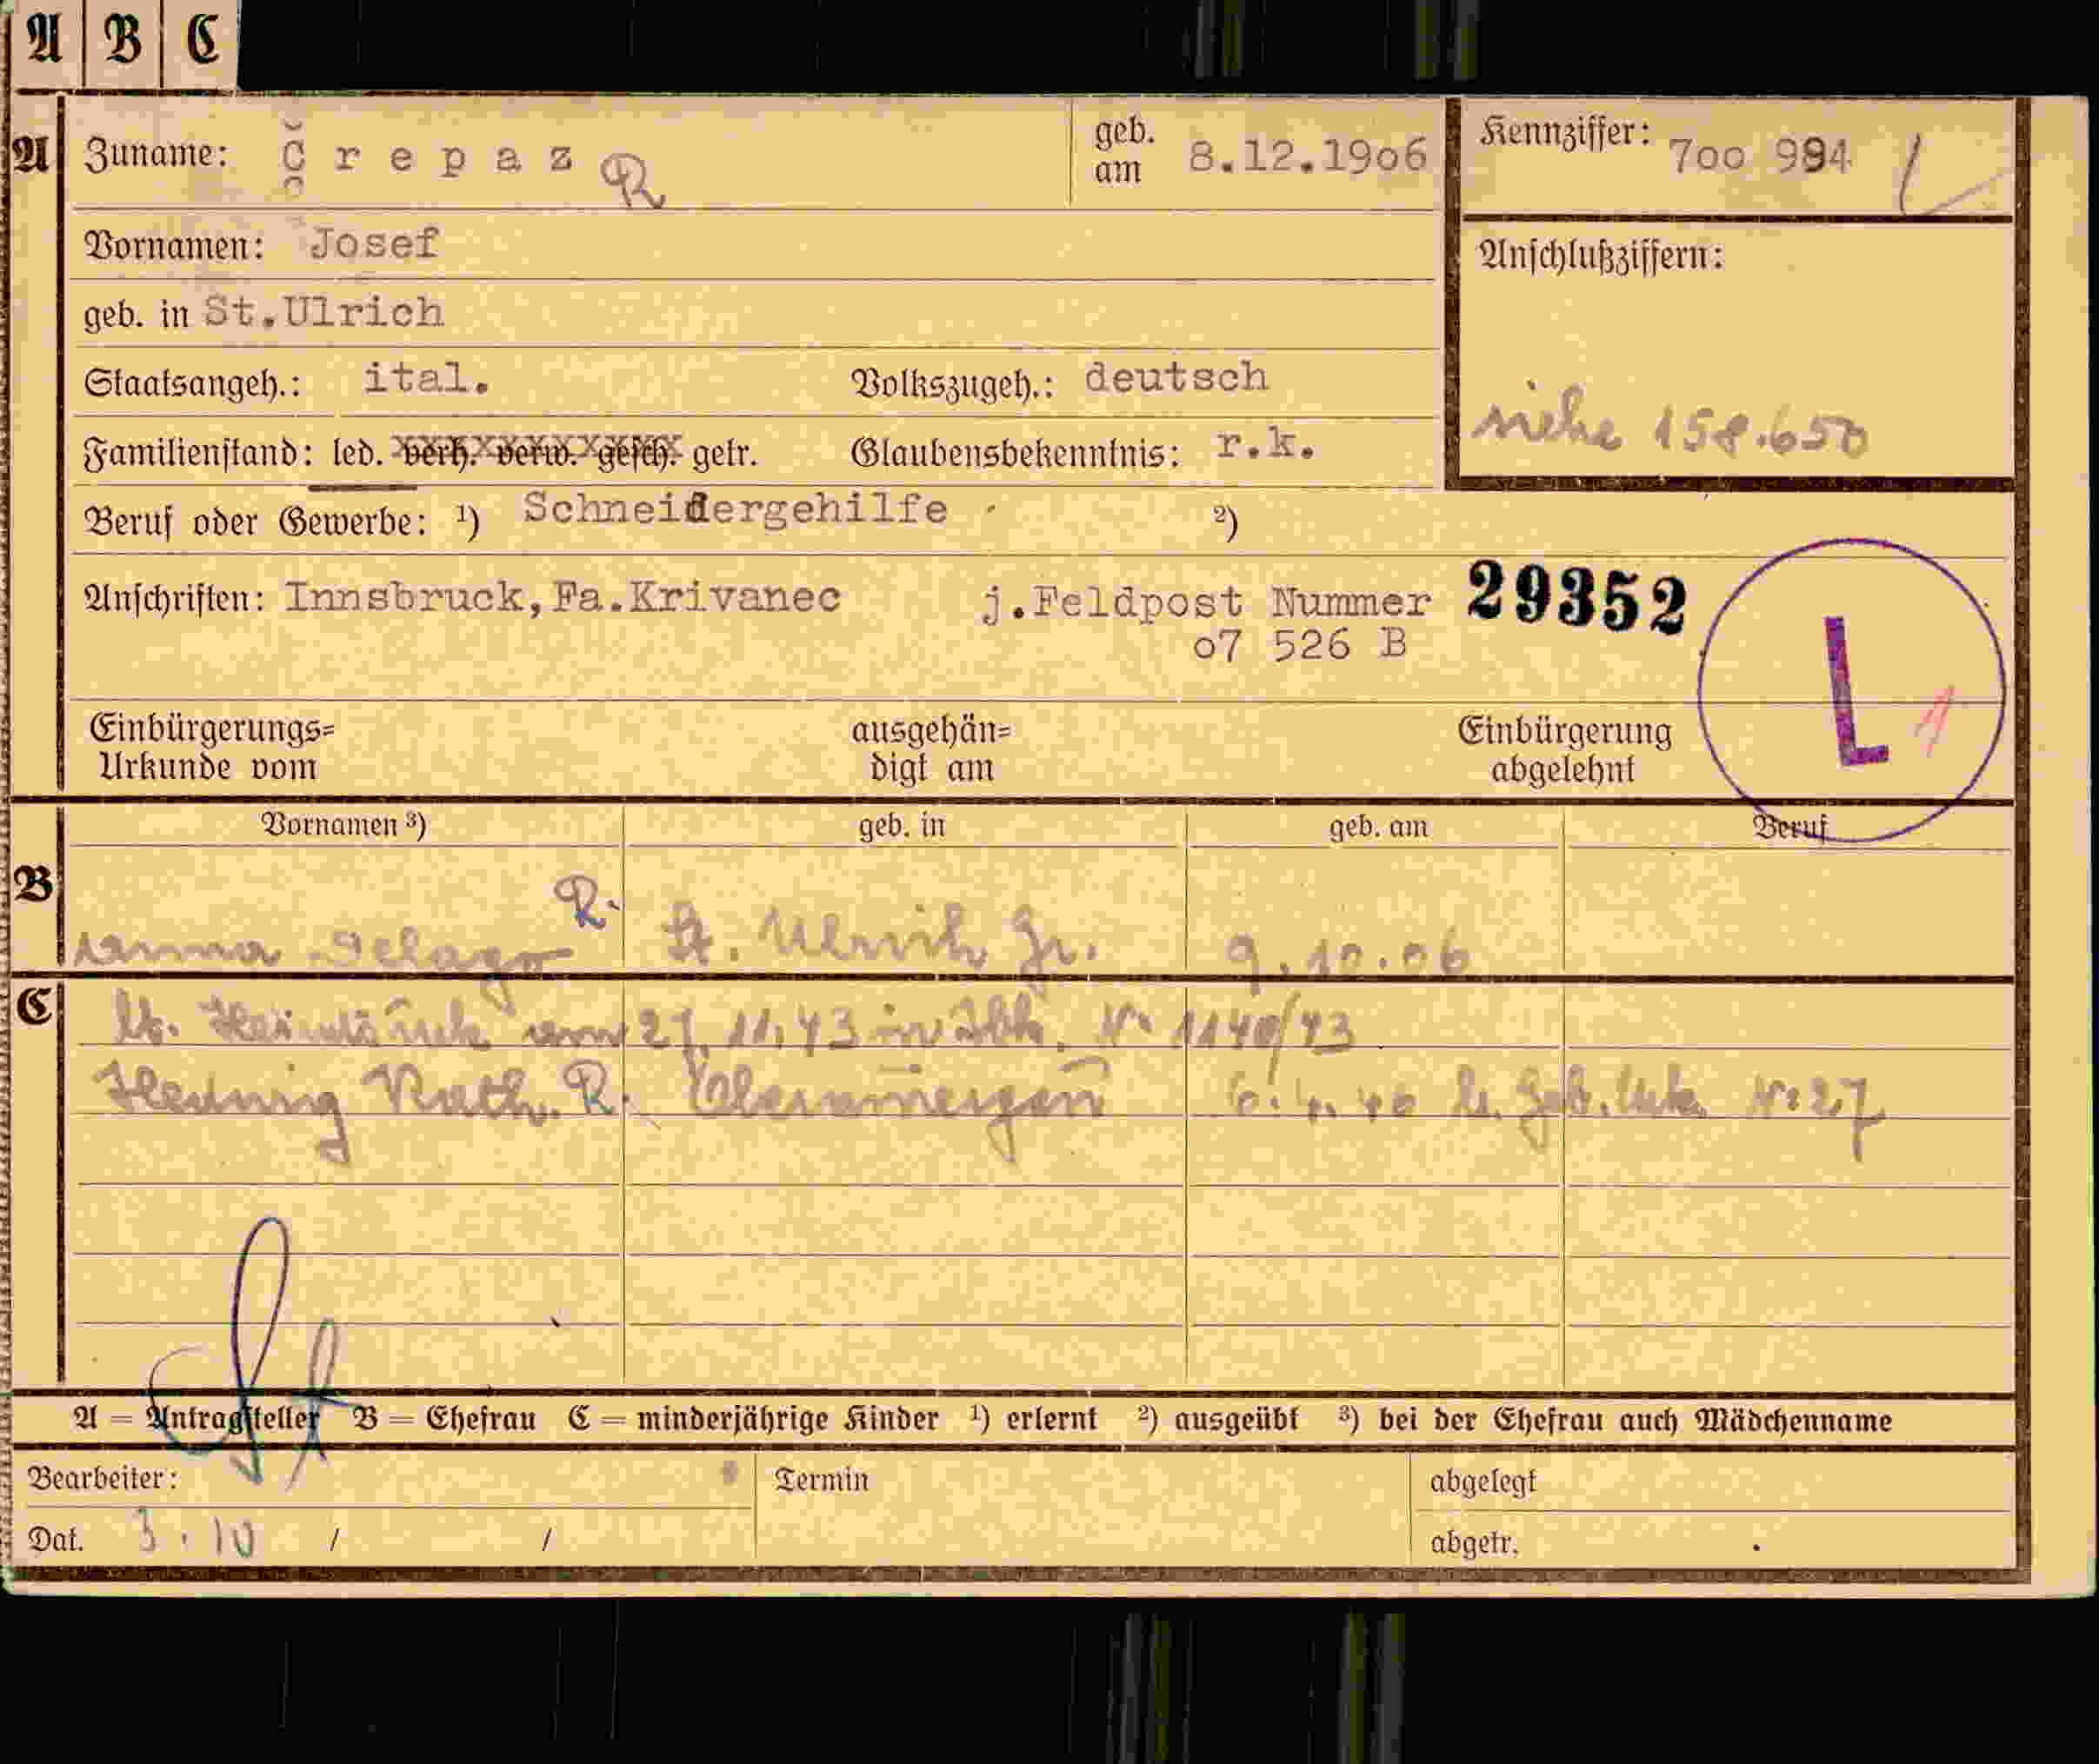 A B C
A Zuname: Črepaz R geb. am 8.12.1906 Kennziffer: 700 984
Vornamen: Josef Anschlußziffern:
geb. in St.Ulrich
Staatsangeh.: ital. Volkszugeh.: deutsch
siehe 158.650
Familienstand: led. verh. verw. gesch. getr. Glaubensbekenntnis: r.k.
Beruf oder Gewerbe: 1) Schneidergehilfe 2)
Anschriften: Innsbruck,Fa.Krivanec j.Feldpost Nummer 29352
07 526 B
L 1
Einbürgerungs= ausgehän= Einbürgerung
Urkunde vom digt am abgelehnt
Vornamen 3) geb. in geb. am Beruf
B R.
Anna Delago St. Ulrich Gr. 9.10.06
C lt. vom 27.11.43 in Ibk. Nr 1140/43
Hedwig Kath. R. 6.4.40 lt. Geb. Urk. Nr 27
A = Antragsteller B = Ehefrau C = minderjährige Kinder 1) erlernt 2) ausgeübt 3) bei der Ehefrau auch Mädchenname
Bearbeiter: Termin abgelegt
Dat. 3.10 / / abgetr.